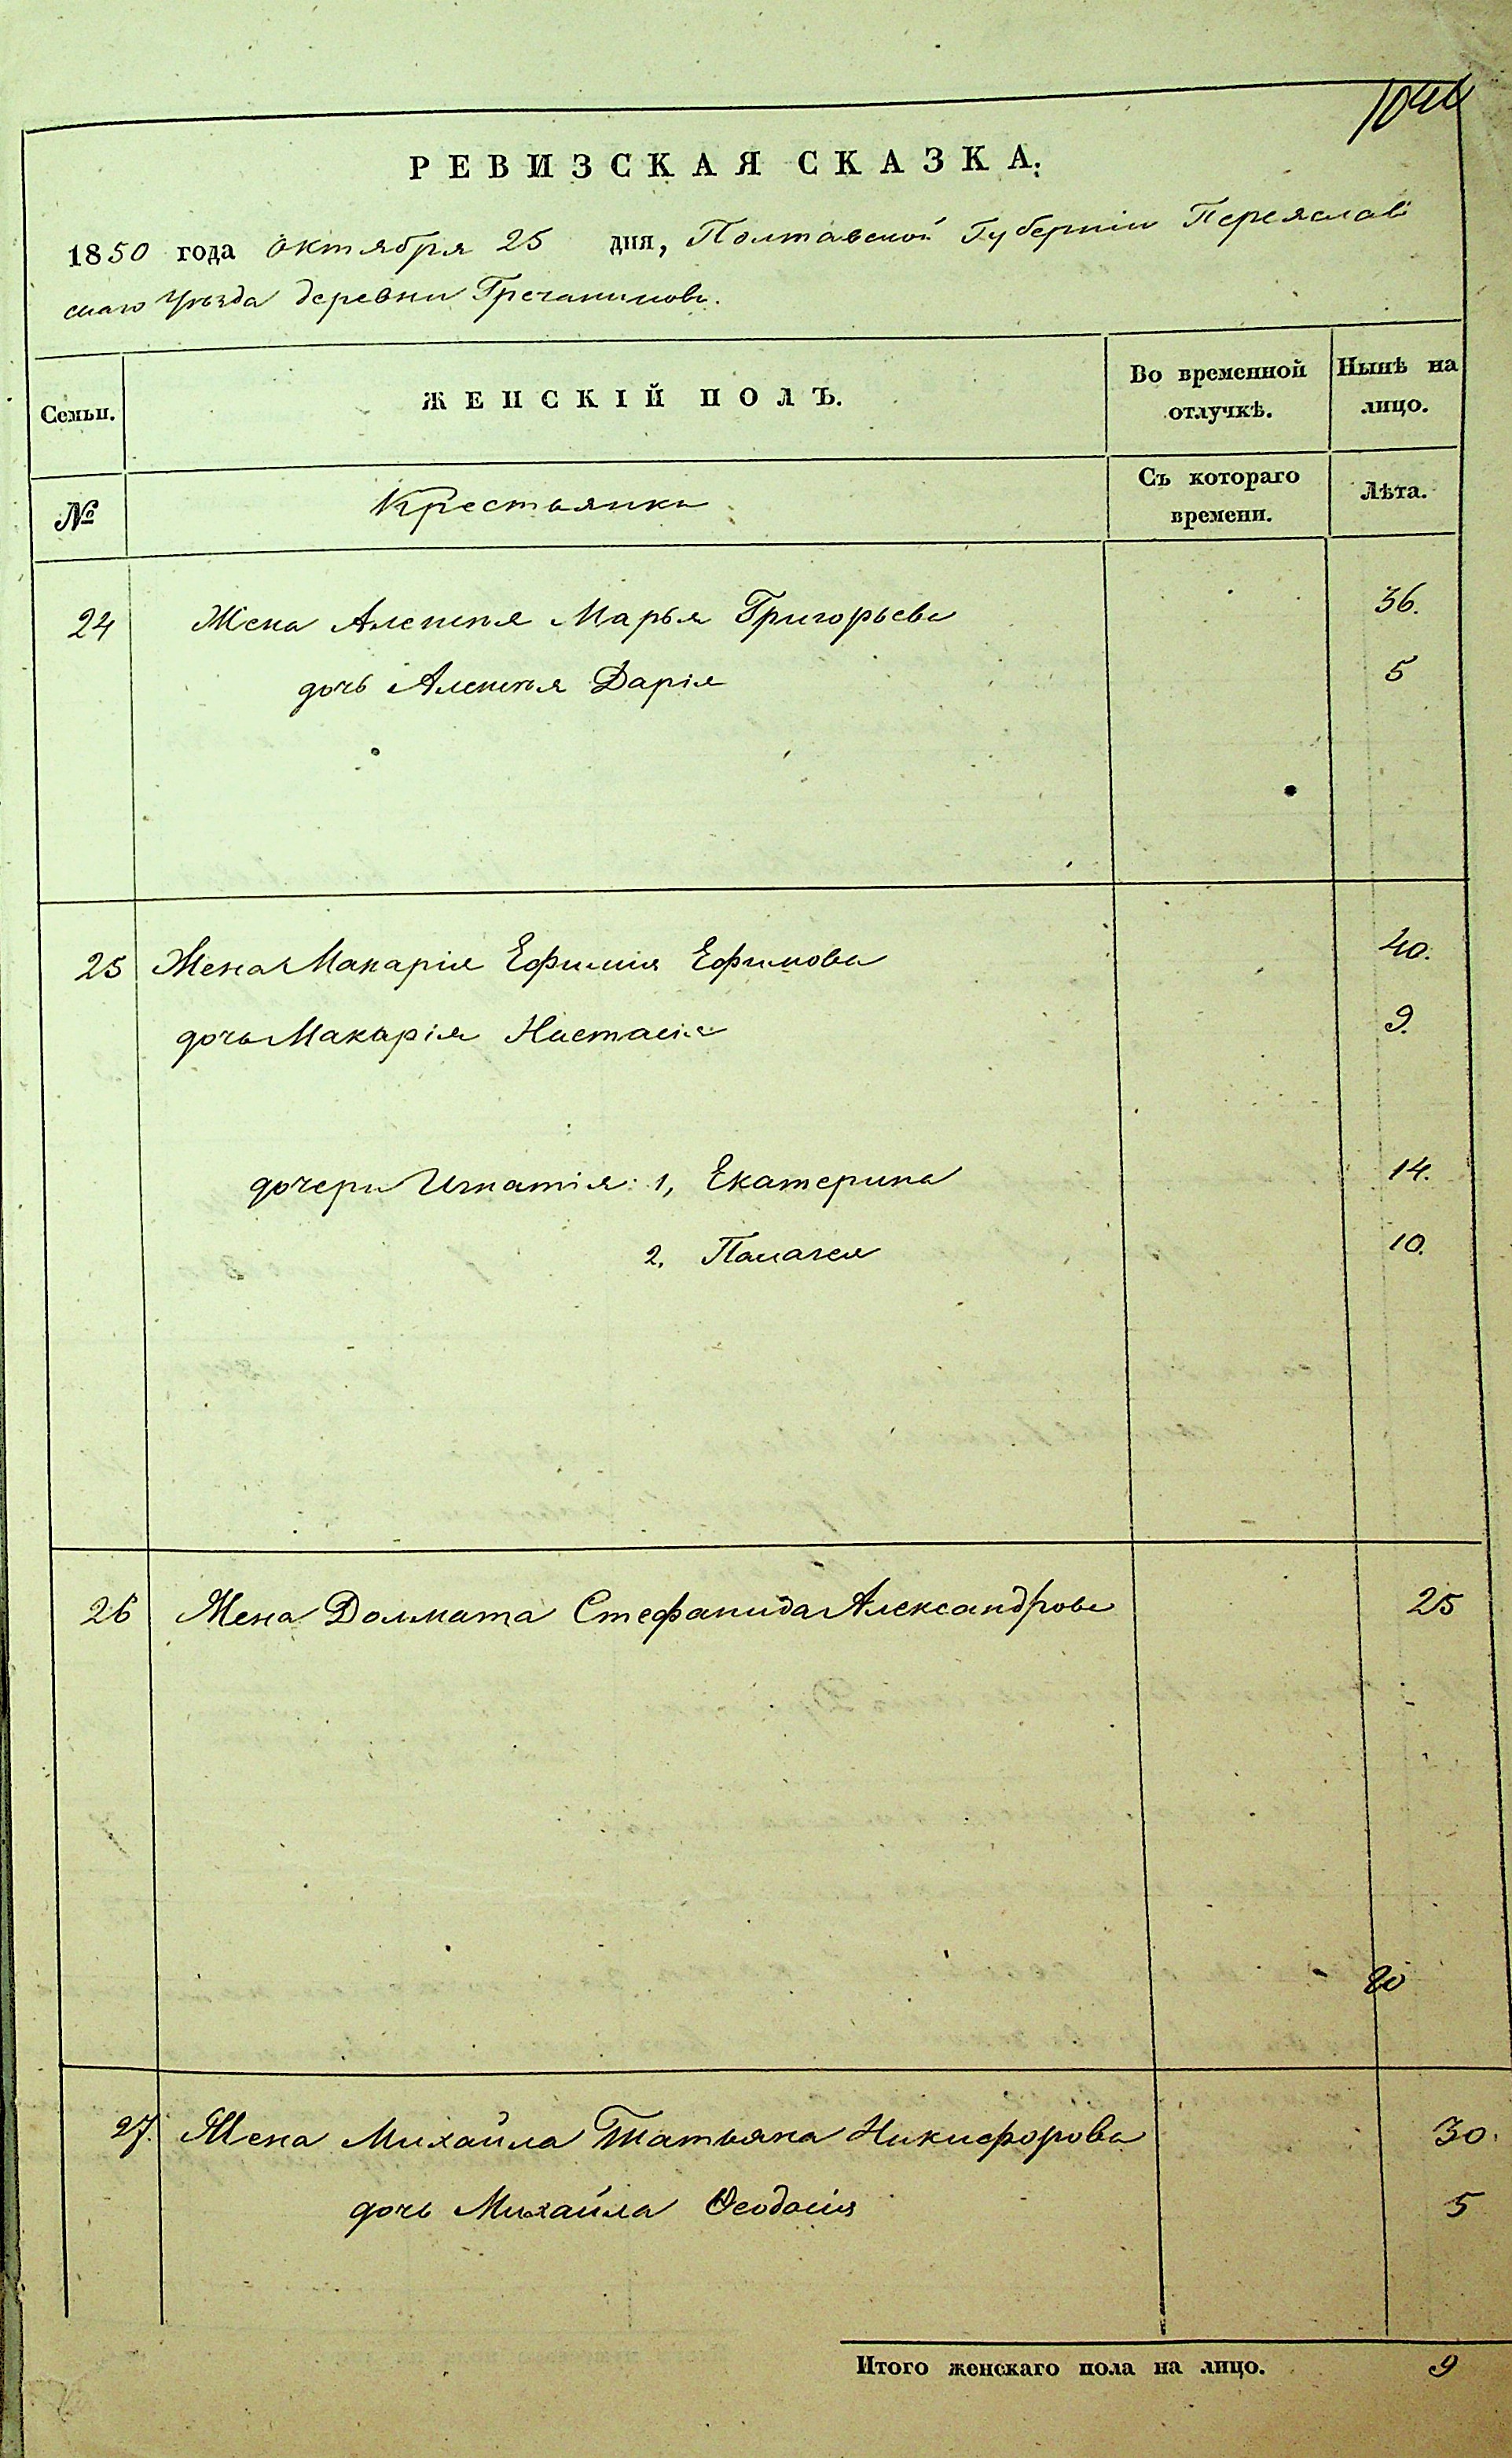 РЕВИЗСКАЯ СКАЗКА.
1850 года октября 25 дня, Полтавской Губерніи Переяслав
скаго Уѣзда деревни
Семьи.
ЖЕНСКІЙ ПОЛЪ.
Во временной
отлучкѣ.
Нынѣ на
лицо.
№
Крестьянки
Съ котораго
времени.
Лѣта.
24 Жена Алексѣя Марья Григорьева 36.
дочь Алексѣя Дарія 5
25 Жена Макарія Ефимія Ефимова 40.
дочь Макарія Настасія 9.
дочери Игнатія: 1, Екатерина 14.
2, Палагея 10.
26 Жена Долмата Стефанида Александрова 25
27. Жена Михайла Татьяна Никифорова 30.
дочь Михайла Ѳеодосія 5
Итого женскаго пола на лицо. 9